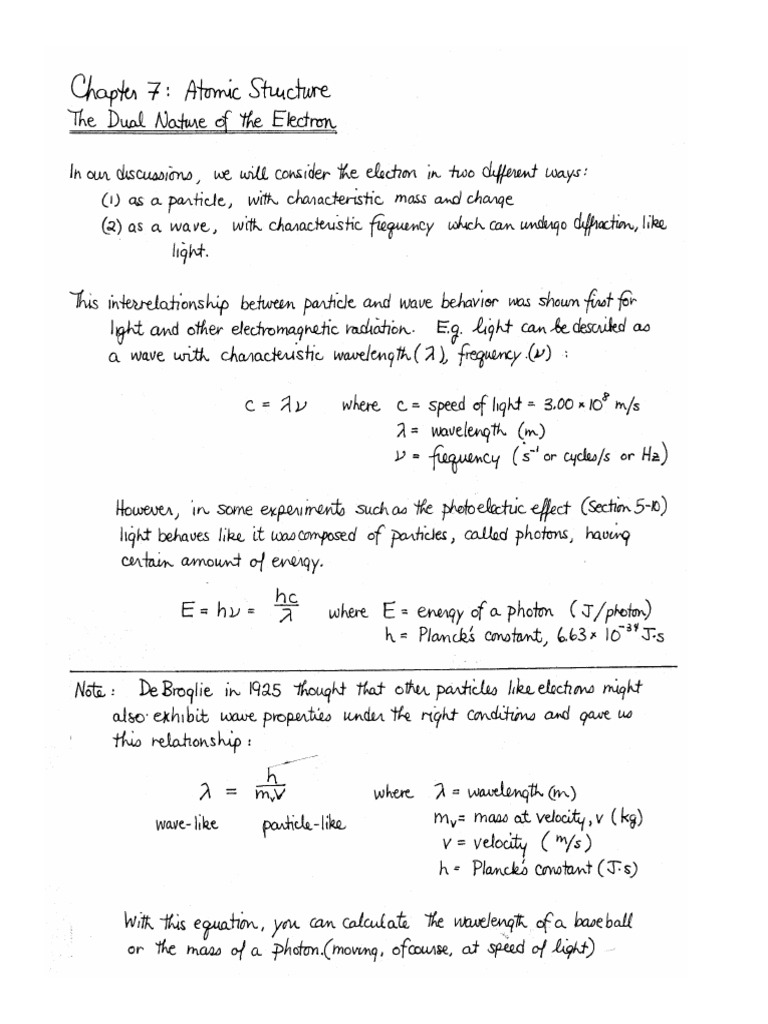 Chapter 7: Atomic Structure
The Dual Nature of the Electron
In our discussions, we will consider the electron in two different ways:
(1) as a particle, with characteristic mass and charge
(2) as a wave, with characteristic frequency which can undergo diffraction, like
light.
This interrelationship between particle and wave behavior was shown first for
light and other electromagnetic radiation. E.g. light can be described as
a wave with characteristic wavelength (λ), frequency (ν) :
c = λν where c = speed of light = 3.00 × 10⁸ m/s
λ = wavelength (m)
ν = frequency (s⁻¹ or cycles/s or Hz)
However, in some experiments such as the photoelectric effect (Section 5-10)
light behaves like it was composed of particles, called photons, having
certain amount of energy.
E = hν = hc/λ where E = energy of a photon (J/photon)
h = Planck's constant, 6.63 × 10⁻³⁴ J·s
Note: De Broglie in 1925 thought that other particles like electrons might
also exhibit wave properties under the right conditions and gave us
this relationship:
λ = h/mᵥv where λ = wavelength (m)
wave-like particle-like mᵥ = mass at velocity, v (kg)
v = velocity (m/s)
h = Planck's constant (J·s)
With this equation, you can calculate the wavelength of a baseball
or the mass of a photon. (moving, of course, at speed of light)